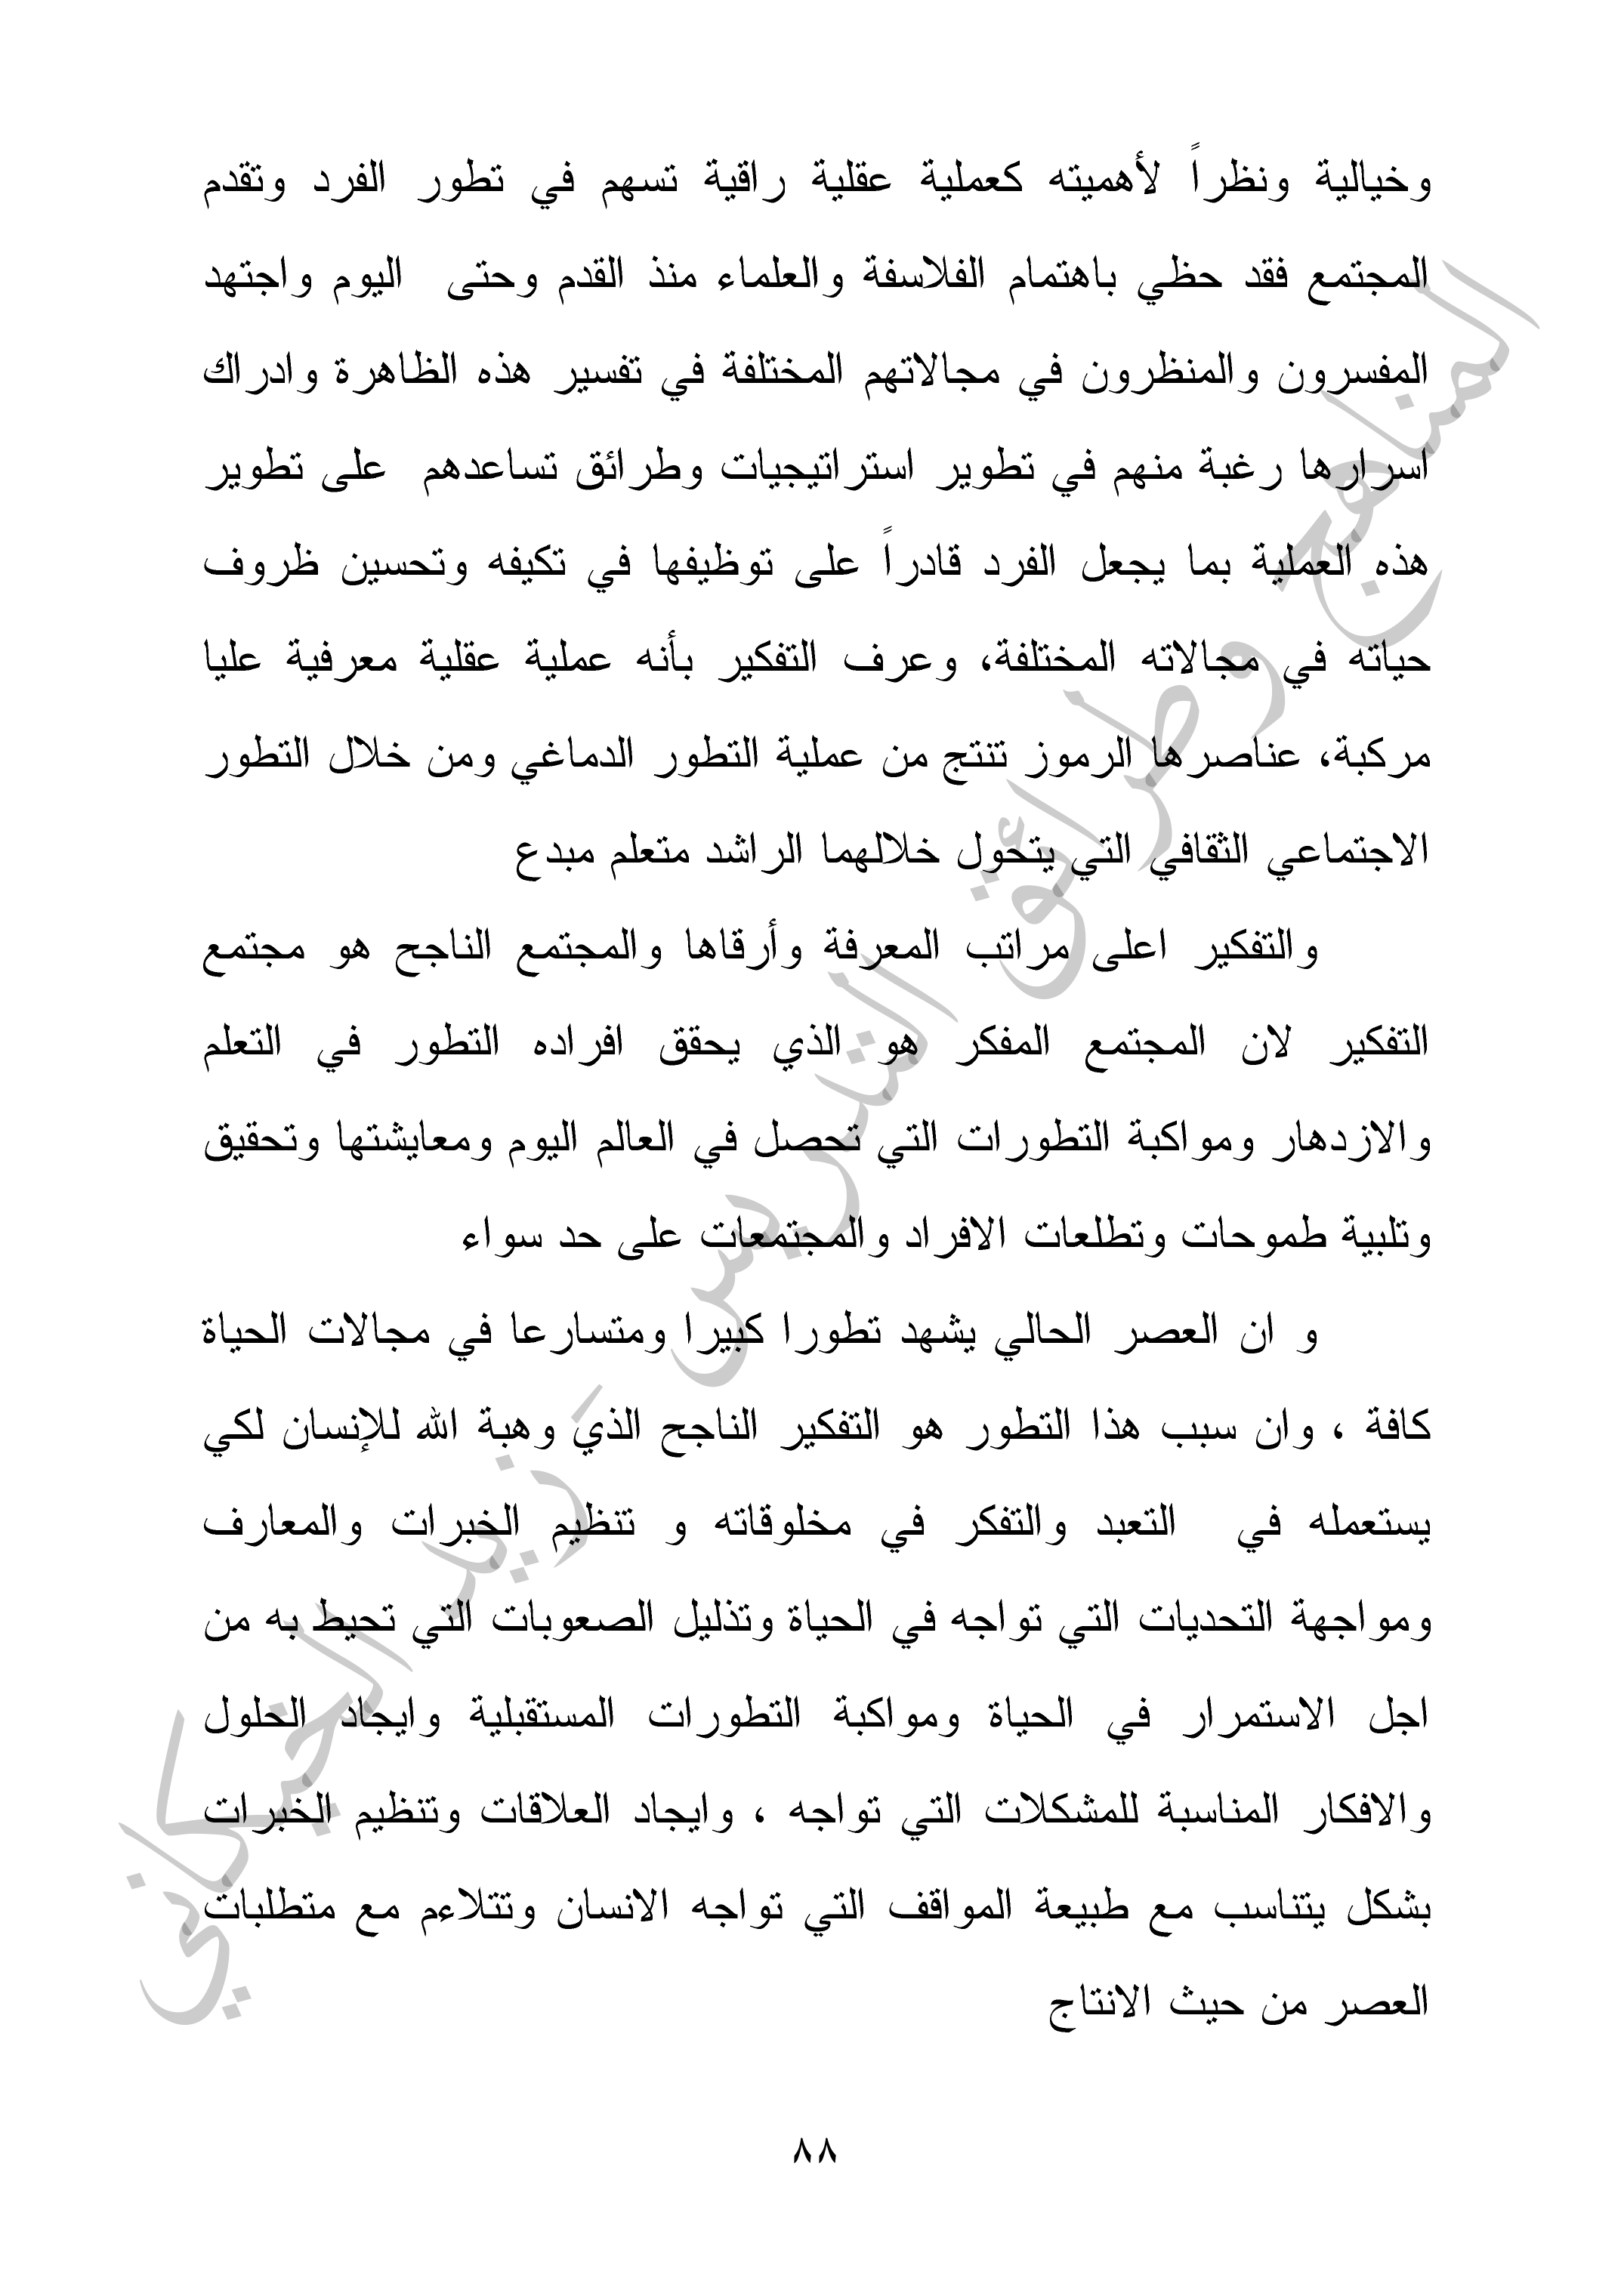 وخيالية ونظراً لأهميته كعملية عقلية راقية تسهم في تطور الفرد وتقدم
المجتمع فقد حظي باهتمام الفلاسفة والعلماء منذ القدم وحتى اليوم واجتهد
المفسرون والمنظرون في مجالاتهم المختلفة في تفسير هذه الظاهرة وادراك
اسرارها رغبة منهم في تطوير استراتيجيات وطرائق تساعدهم على تطوير
هذه العملية بما يجعل الفرد قادراً على توظيفها في تكيفه وتحسين ظروف
حياته في مجالاته المختلفة، وعرف التفكير بأنه عملية عقلية معرفية عليا
مركبة، عناصرها الرموز تنتج من عملية التطور الدماغي ومن خلال التطور
الاجتماعي الثقافي التي يتحول خلالهما الراشد متعلم مبدع
والتفكير اعلى مراتب المعرفة وأرقاها والمجتمع الناجح هو مجتمع
التفكير لان المجتمع المفكر هو الذي يحقق افراده التطور في التعلم
والازدهار ومواكبة التطورات التي تحصل في العالم اليوم ومعايشتها وتحقيق
وتلبية طموحات وتطلعات الافراد والمجتمعات على حد سواء
و ان العصر الحالي يشهد تطورا كبيرا ومتسارعا في مجالات الحياة
كافة ، وان سبب هذا التطور هو التفكير الناجح الذي وهبة الله للإنسان لكي
يستعمله في التعبد والتفكر في مخلوقاته و تنظيم الخبرات والمعارف
ومواجهة التحديات التي تواجه في الحياة وتذليل الصعوبات التي تحيط به من
اجل الاستمرار في الحياة ومواكبة التطورات المستقبلية وايجاد الحلول
والافكار المناسبة للمشكلات التي تواجه ، وايجاد العلاقات وتنظيم الخبرات
بشكل يتناسب مع طبيعة المواقف التي تواجه الانسان وتتلاءم مع متطلبات
العصر من حيث الانتاج
٨٨
المناهج وطرائق التدريس - زيد الخيكاني